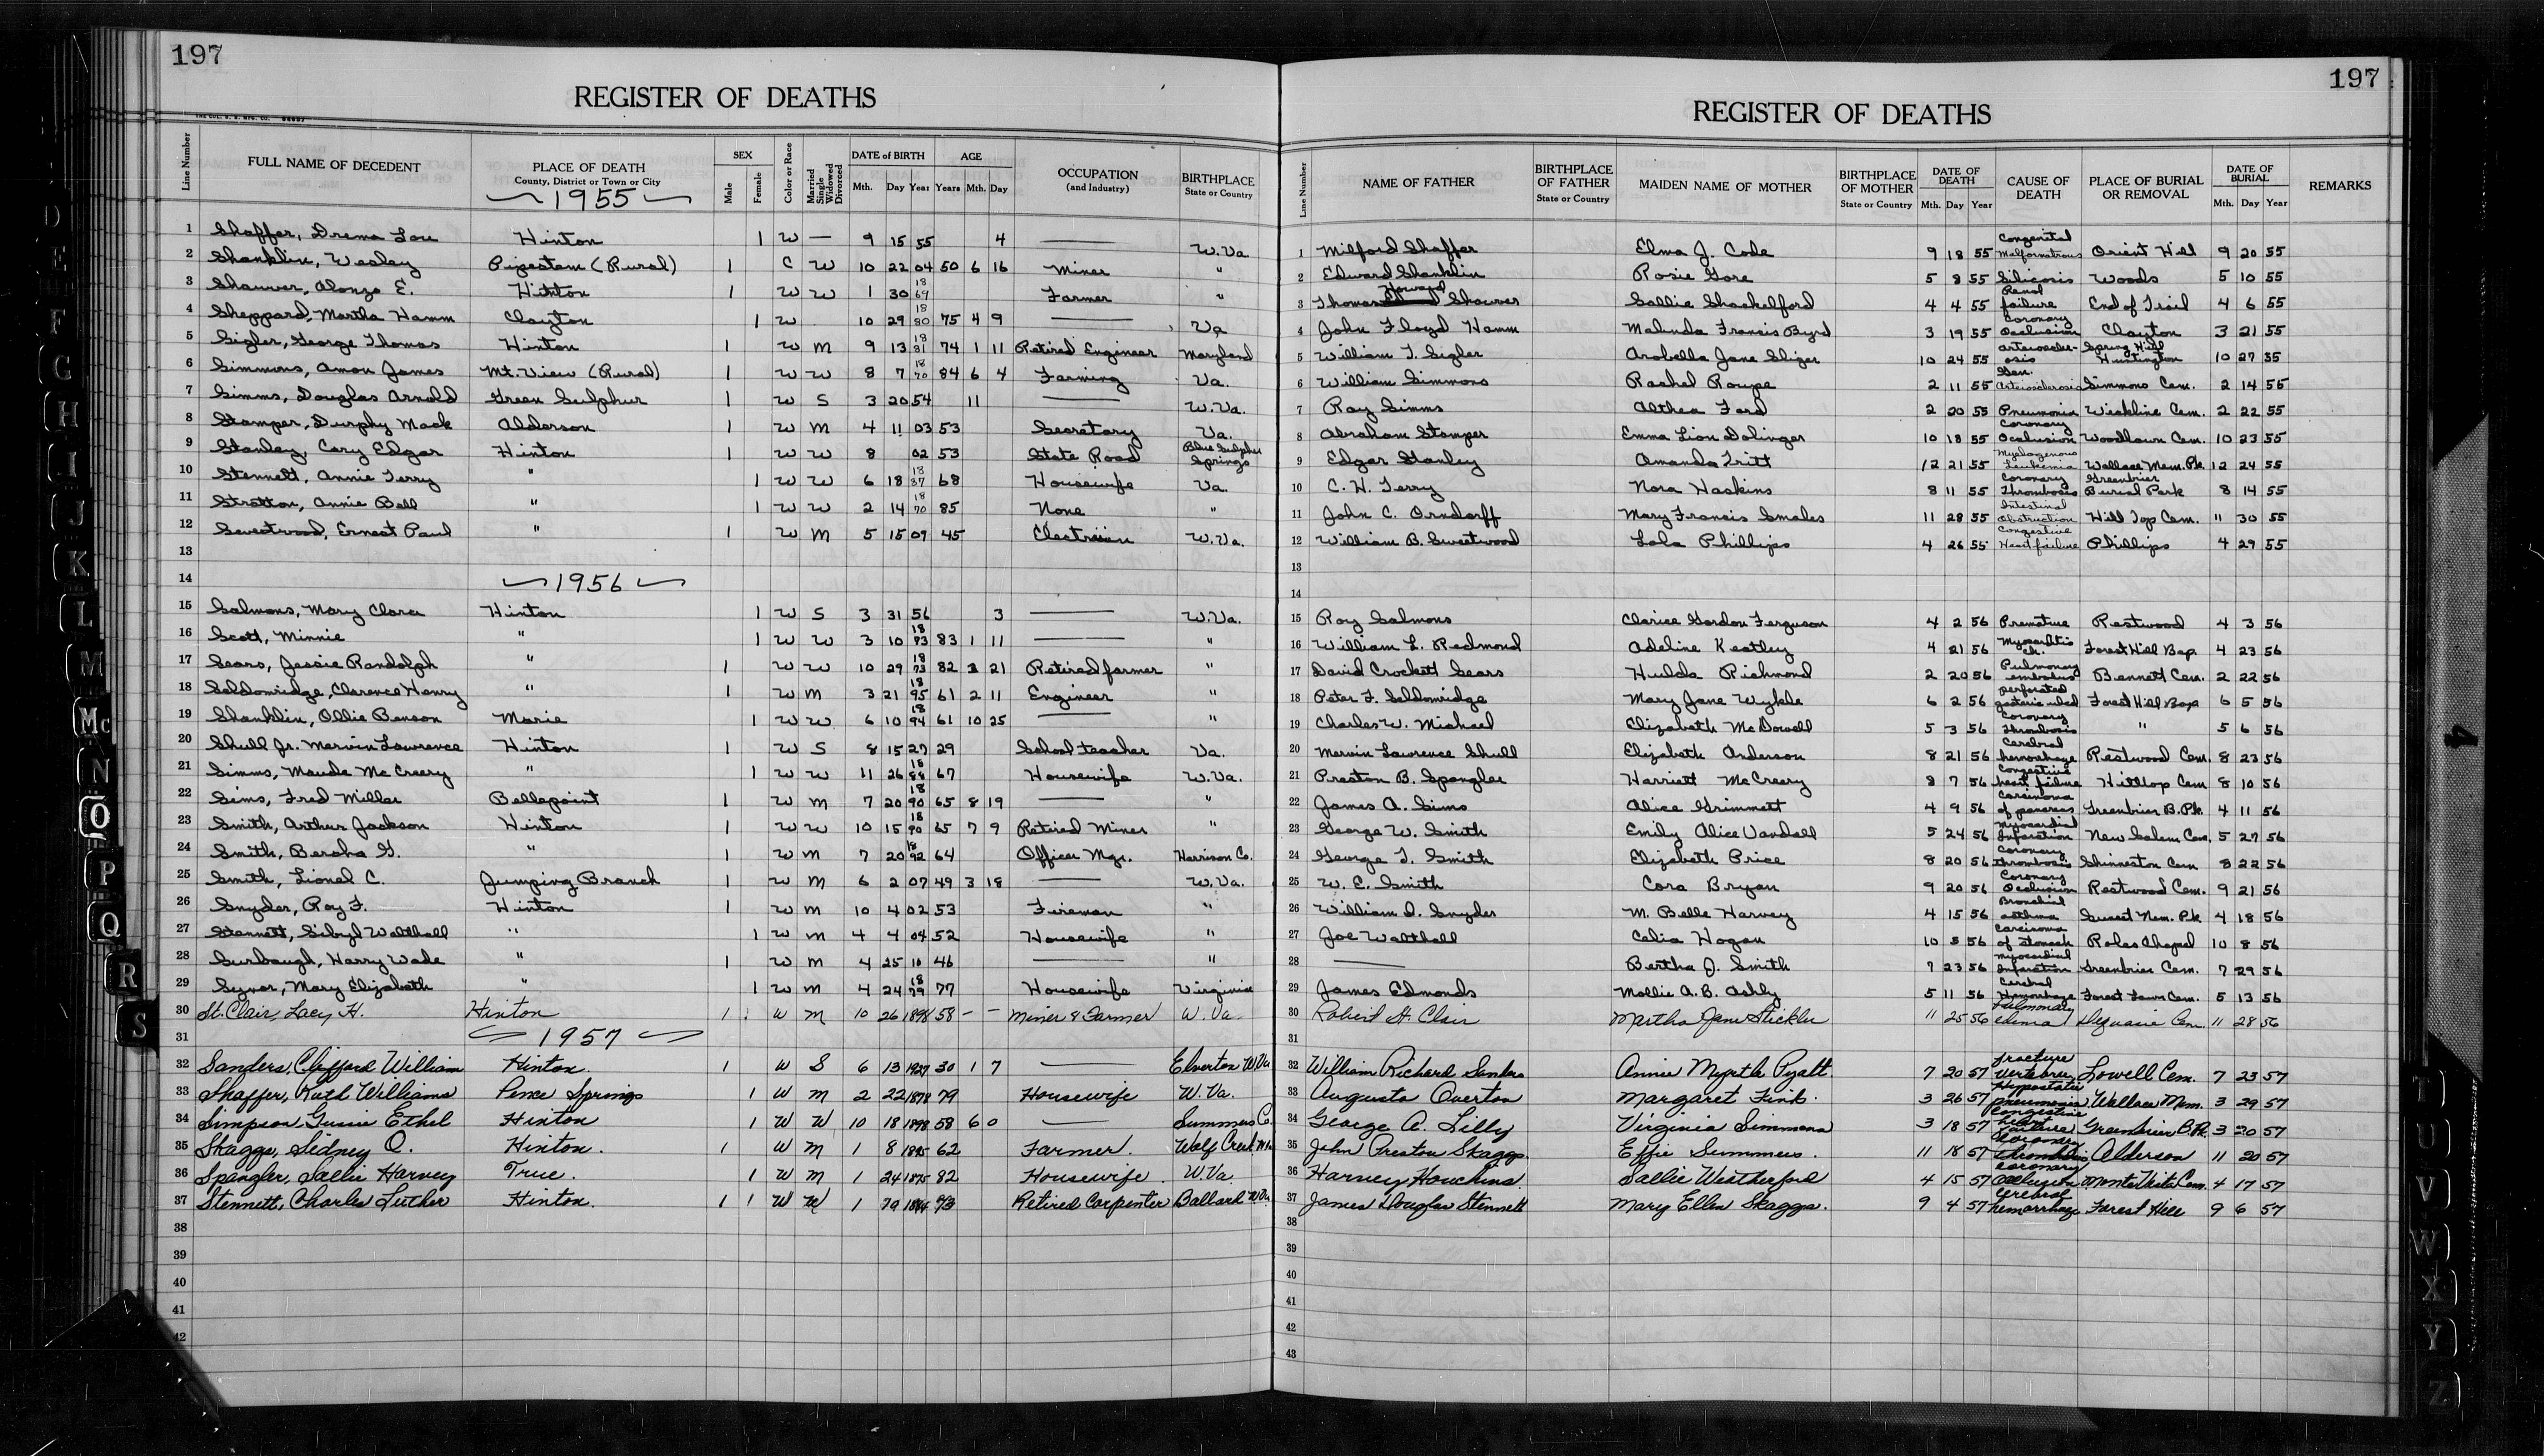 197
REGISTER OF DEATHS
Line Number FULL NAME OF DECEDENT PLACE OF DEATH County, District or Town or City SEX Male Female Color or Race Married Single Widowed Divorced DATE of BIRTH Mth. Day Year AGE Years Mth. Day OCCUPATION (and Industry) BIRTHPLACE State or Country
1955
1 Shaffer, Drema Lou Hinton 1 W — 9 15 55 4 — W.Va
2 Shanklin, Wesley Pipestem (Rural) 1 C W 10 22 04 50 6 16 Miner "
3 Shauver, Alonzo E. Hinton 1 W W 1 30 1869 Farmer "
4 Sheppard, Martha Hamm Clayton 1 W 10 29 1880 75 4 9 — Va
5 Sigler, George Thomas Hinton 1 W M 9 13 1881 74 1 11 Retired Engineer Maryland
6 Simmons, Amon James Mt. View (Rural) 1 W W 8 7 1870 84 6 4 Farming Va.
7 Simms, Douglas Arnold Green Sulphur 1 W S 3 20 54 11 — W.Va.
8 Stamper, Durphy Mack Alderson 1 W M 4 11 03 53 Secretary Va.
9 Stanley, Cary Edgar Hinton 1 W W 8 02 53 State Road Blue Sulphur Springs
10 Stennett, Annie Terry " 1 W W 6 18 1887 68 Housewife Va.
11 Stratton, Annie Bell " 1 W W 2 14 1870 85 None "
12 Sweetwood, Ernest Paul " 1 W M 5 15 09 45 Electrician W.Va.
13
14 1956
15 Salmons, Mary Clara Hinton 1 W S 3 31 56 3 — W.Va.
16 Scott, Minnie " 1 W W 3 10 1873 83 1 11 — "
17 Sears, Jessie Randolph " 1 W W 10 29 1873 82 3 21 Retired farmer "
18 Seldomridge, Clarence Henry " 1 W M 3 21 1895 61 2 11 Engineer "
19 Shanklin, Ollie Benson Marie 1 W W 6 10 1894 61 10 25 — "
20 Shull Jr. Mervin Lawrence Hinton 1 W S 8 15 27 29 School teacher Va.
21 Simms, Maude McCreery " 1 W W 11 26 1888 67 Housewife W.Va.
22 Sims, Fred Miller Bellepoint 1 W M 7 20 1890 65 8 19 — "
23 Smith, Arthur Jackson Hinton 1 W W 10 15 1890 65 7 9 Retired Miner "
24 Smith, Bersha G. " 1 W M 7 20 1892 64 Officer Mgr. Harrison Co.
25 Smith, Lional C. Jumping Branch 1 W M 6 2 07 49 3 18 — W.Va.
26 Snyder, Roy F. Hinton 1 W M 10 4 02 53 Fireman "
27 Stennett, Sibyl Walthall " 1 W M 4 4 04 52 Housewife "
28 Surbaugh, Harry Wade " 1 W M 4 25 10 46 — "
29 Synor, Mary Elizabeth " 1 W M 4 24 1879 77 Housewife Virginia
30 St. Clair, Lacy H. Hinton 1 W M 10 26 1898 58 - - Miner & Farmer W.Va.
31 1957
32 Sanders, Clifford William Hinton. 1 W S 6 13 1927 30 1 7 — Elverton W.Va
33 Shaffer, Ruth Williams Pence Springs 1 W M 2 22 1878 79 Housewife W.Va.
34 Simpson, Gussie Ethel Hinton 1 W W 10 18 1898 58 6 0 — Summers Co.
35 Skaggs, Sidney O. Hinton. 1 W M 1 8 1895 62 Farmer. Wolf Creek
36 Spangler, Sallie Harvey True. 1 W M 1 24 1875 82 Housewife. W.Va.
37 Stennett, Charles Luther Hinton. 1 1 W W 1 1864 93 Retired Carpenter Ballard W.Va.
38
39
40
41
42
197
REGISTER OF DEATHS
Line Number NAME OF FATHER BIRTHPLACE OF FATHER State or Country MAIDEN NAME OF MOTHER BIRTHPLACE OF MOTHER State or Country DATE OF DEATH Mth. Day Year CAUSE OF DEATH PLACE OF BURIAL OR REMOVAL DATE OF BURIAL Mth. Day Year REMARKS
1 Milford Shaffer Elma J. Code 9 18 55 Congenital Malformations Orient Hill 9 20 55
2 Edward Shanklin Rosie Gore 5 8 55 Silicosis Woods 5 10 55
3 Thomas Howard Shauver Sallie Shackelford 4 4 55 Renal failure End of Trail 4 6 55
4 John Floyd Hamm Malinda Francis Byrd 3 19 55 Coronary Occlusion Clayton 3 21 55
5 William T. Sigler Arabella Jane Sliger 10 24 55 Arteriosclerosis Spring Hill Huntington 10 27 55
6 William Simmons Rachel Roupe 2 11 55 Gen. Arteriosclerosis Simmons Cem. 2 14 55
7 Roy Simms Althea Ford 2 20 55 Pneumonia Wickline Cem. 2 22 55
8 Abraham Stamper Emma Lion Dolinger 10 18 55 Coronary Occlusion Woodlawn Cem. 10 23 55
9 Edgar Stanley Amanda Tritt 12 21 55 Myelogenous Leukemia Wallace Mem. Pk. 12 24 55
10 C. H. Terry Nora Haskins 8 11 55 Coronary Thrombosis Greenbrier Burial Park 8 14 55
11 John C. Orndorff Mary Francis Smales 11 28 55 Intestinal Obstruction Hill Top Cem. 11 30 55
12 William B. Sweetwood Lola Phillips 4 26 55 Congestive Heart failure Phillips 4 29 55
13
14
15 Roy Salmons Clarice Gordon Ferguson 4 2 56 Premature Restwood 4 3 56
16 William L. Redmond Adeline Keatley 4 21 56 Myocarditis ch. Forest Hill Bap 4 23 56
17 David Crockett Sears Hulda Richmond 2 20 56 Pulmonary embolus Bennett Cem. 2 22 56
18 Peter F. Seldomridge Mary Jane Wykle 6 2 56 perforated gastric ulcer Forest Hill Bap 6 5 56
19 Charles W. Michael Elizabeth McDowell 5 3 56 Coronary Thrombosis " 5 6 56
20 Mervin Lawrence Shull Elizabeth Anderson 8 21 56 Cerebral hemorrhage Restwood Cem. 8 23 56
21 Preston B. Spangler Harriett McCreery 8 7 56 Congestive heart failure Hilltop Cem 8 10 56
22 James A. Sims Alice Grimmett 4 9 56 Carcinoma of pancreas Greenbrier B. Pk. 4 11 56
23 George W. Smith Emily Alice Vandall 5 24 56 Myocardial Infarction New Salem Cem. 5 27 56
24 George T. Smith Elizabeth Price 8 20 56 Coronary thrombosis Shinnston Cem 8 22 56
25 W. E. Smith Cora Bryan 9 20 56 Coronary Occlusion Restwood Cem. 9 21 56
26 William D. Snyder M. Belle Harvey 4 15 56 Bronchial asthma Sunset Mem. Pk 4 18 56
27 Joe Walthall Celia Hogan 10 5 56 Carcinoma of stomach Roles Chapel 10 8 56
28 — Bertha J. Smith 7 23 56 Myocardial Infarction Greenbrier Cem. 7 29 56
29 James Edmonds Mollie A. B. Ashly 5 11 56 Cerebral Hemorrhage Forest Lawn Cem. 5 13 56
30 Robert H. Clair Martha Jane Stickler 11 25 56 Pulmonary edema Cem. 11 28 56
31
32 William Richard Sanders Annie Myrtle Pyatt. 7 20 57 fracture vertebrae Lowell Cem. 7 23 57
33 Augusta Overton Margaret Fink. 3 26 57 Hypostatic pneumonia Wallace Mem. 3 29 57
34 George A. Lilly Virginia Simmons 3 18 57 Congestive heart failure Greenbrier B.P. 3 20 57
35 John Preston Skaggs. Effie Summers. 11 18 57 Coronary thrombosis Alderson 11 20 57
36 Harvey Houchins. Sallie Weatherford 4 15 57 Coronary Occlusion Monte Vista Cem. 4 17 57
37 James Douglas Stennett Mary Ellen Skaggs. 9 4 57 Cerebral hemorrhage Forest Hill 9 6 57
38
39
40
41
42
43
D
E
F
G
H
I
J
K
L
M
Mc
N
O
P
Q
R
S
T
U
V
W
X
Y
Z
4